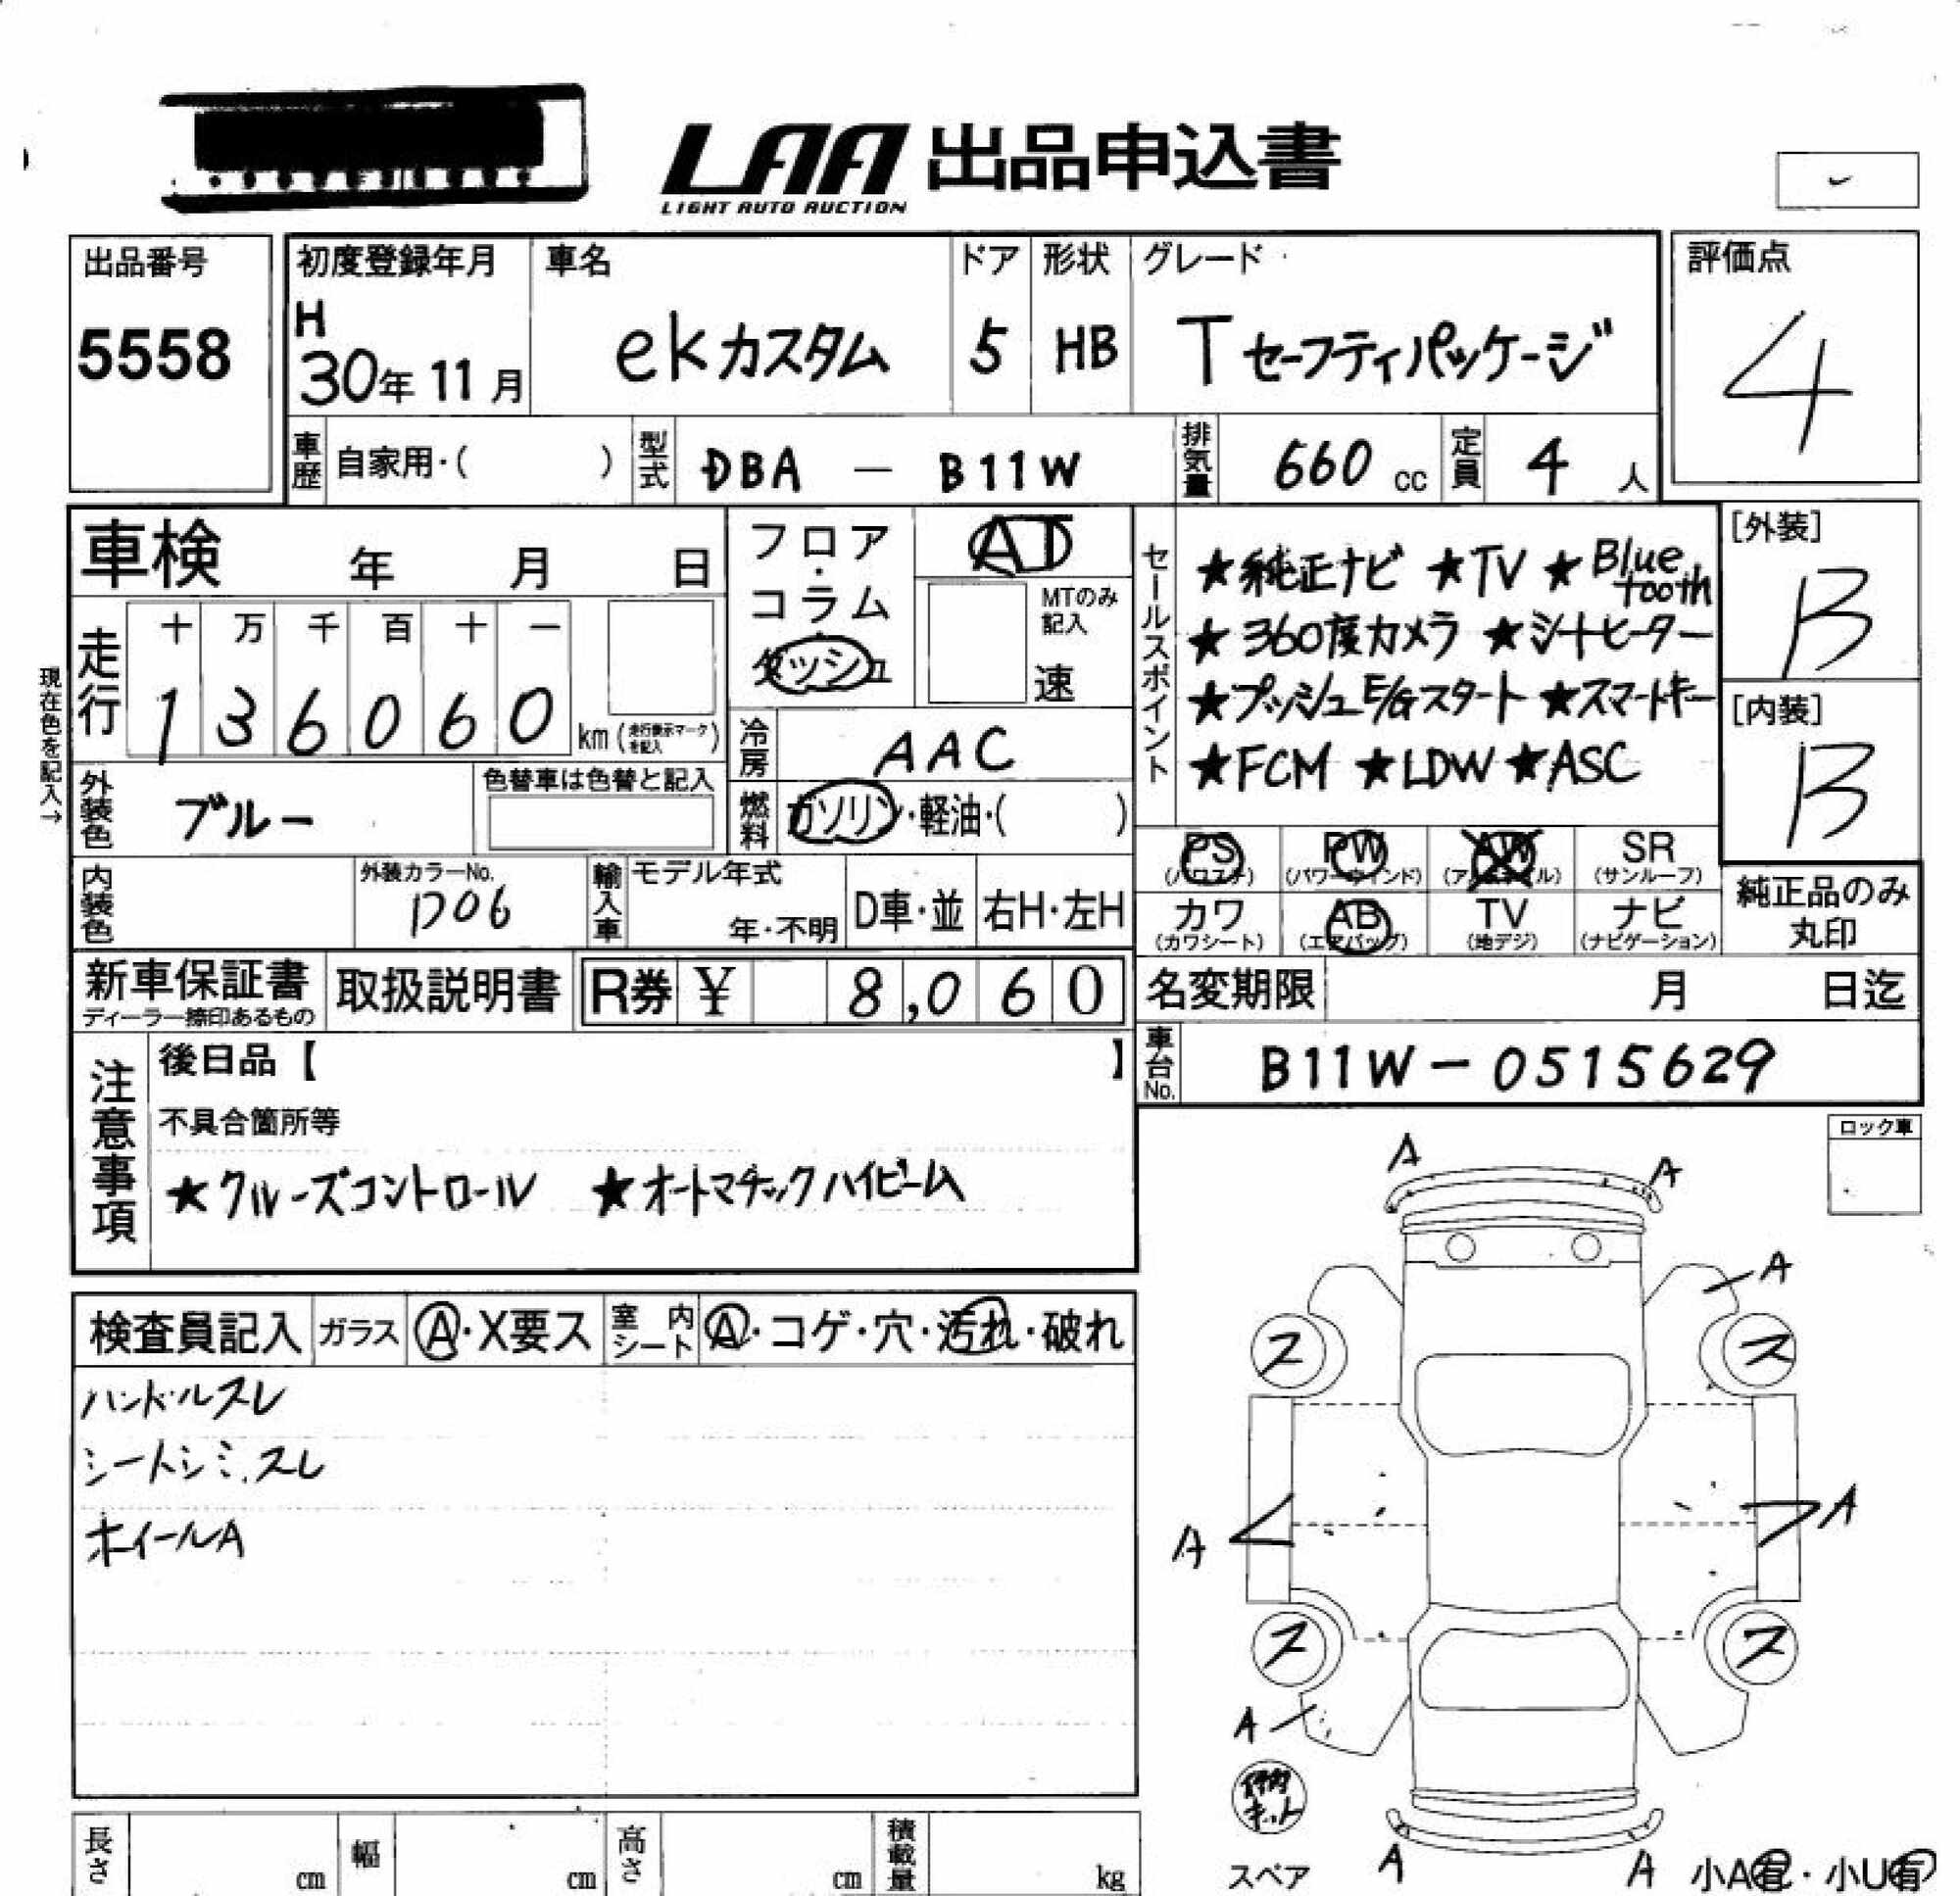 LAA 出品申込書
LIGHT AUTO AUCTION
出品番号
5558
初度登録年月
H
30年 11月
車名
ekカスタム
ドア
5
形状
HB
グレード
Tセーフティパッケージ
評価点
4
車歴 自家用・( )
型式 DBA － B11W
排気量 660 cc
定員 4 人
車検 年 月 日
フロア・コラム・ダッシュ
AT
MTのみ記入
速
走行
十 万 千 百 十 一
1 3 6 0 6 0 km (走行表示マークを記入)
現在色を記入→
冷房 AAC
外装色 ブルー
色替車は色替と記入
燃料 ガソリン・軽油・( )
内装色
外装カラーNo.
D06
輸入車
モデル年式
年・不明
D車・並
右H・左H
セールスポイント
★純正ナビ ★TV ★Bluetooth
★360度カメラ ★シートヒーター
★プッシュE/Gスタート ★スマートキー
★FCM ★LDW ★ASC
[外装]
B
[内装]
B
PS (パワステ)
PW (パワーウインド)
AW (アルミホイル)
SR (サンルーフ)
カワ (カワシート)
AB (エアバッグ)
TV (地デジ)
ナビ (ナビゲーション)
純正品のみ
丸印
新車保証書
ディーラー捺印あるもの
取扱説明書
R券 ¥ 8,060
名変期限 月 日迄
車台No. B11W－0515629
注意事項
後日品【 】
不具合箇所等
★クルーズコントロール ★オートマチックハイビーム
ロック車
検査員記入
ガラス A・X要ス
室内シート A・コゲ・穴・汚れ・破れ
ハンドルスレ
シートシミ、スレ
ホイールA
A A
A
ス ス
A A
ス ス
A
スペア
A A
小A有・小U有
長さ cm
幅 cm
高さ cm
積載量 kg